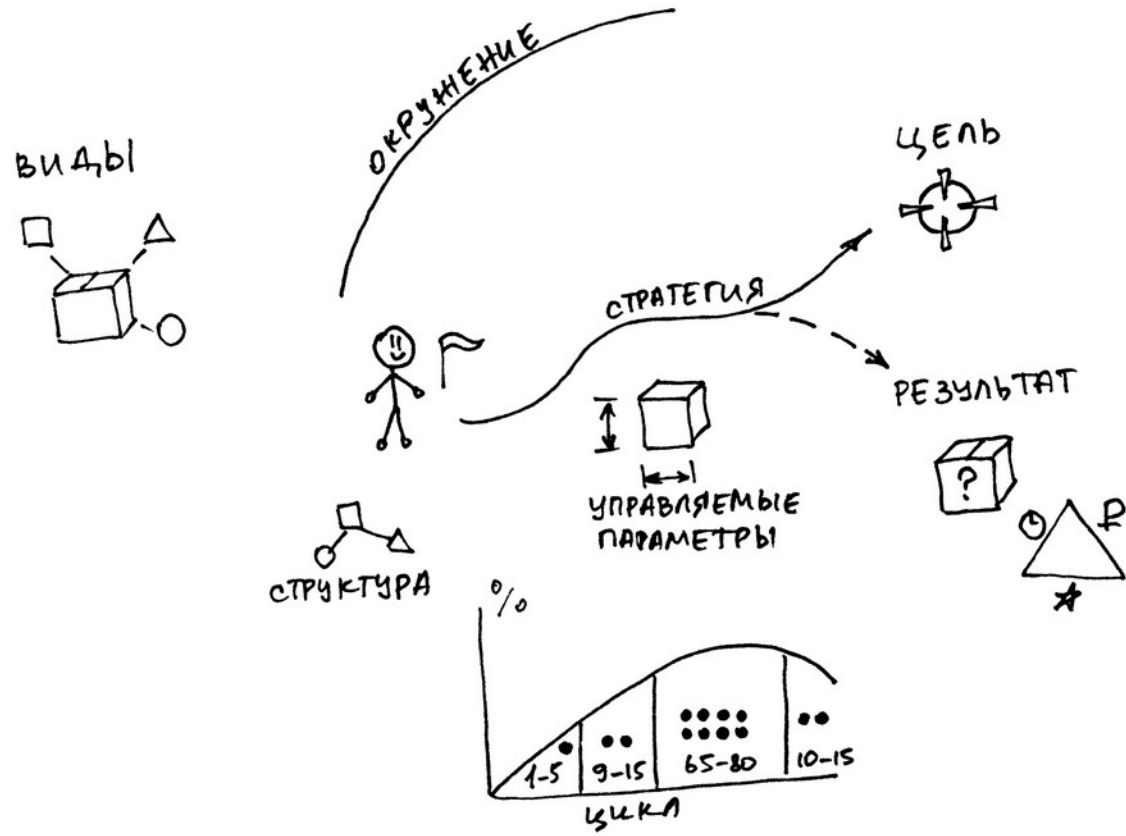 ОКРУЖЕНИЕ
ВИДЫ
ЦЕЛЬ
СТРАТЕГИЯ
РЕЗУЛЬТАТ
?
₽
УПРАВЛЯЕМЫЕ
ПАРАМЕТРЫ
СТРУКТУРА
%
1-5 9-15 65-80 10-15
ЦИКЛ